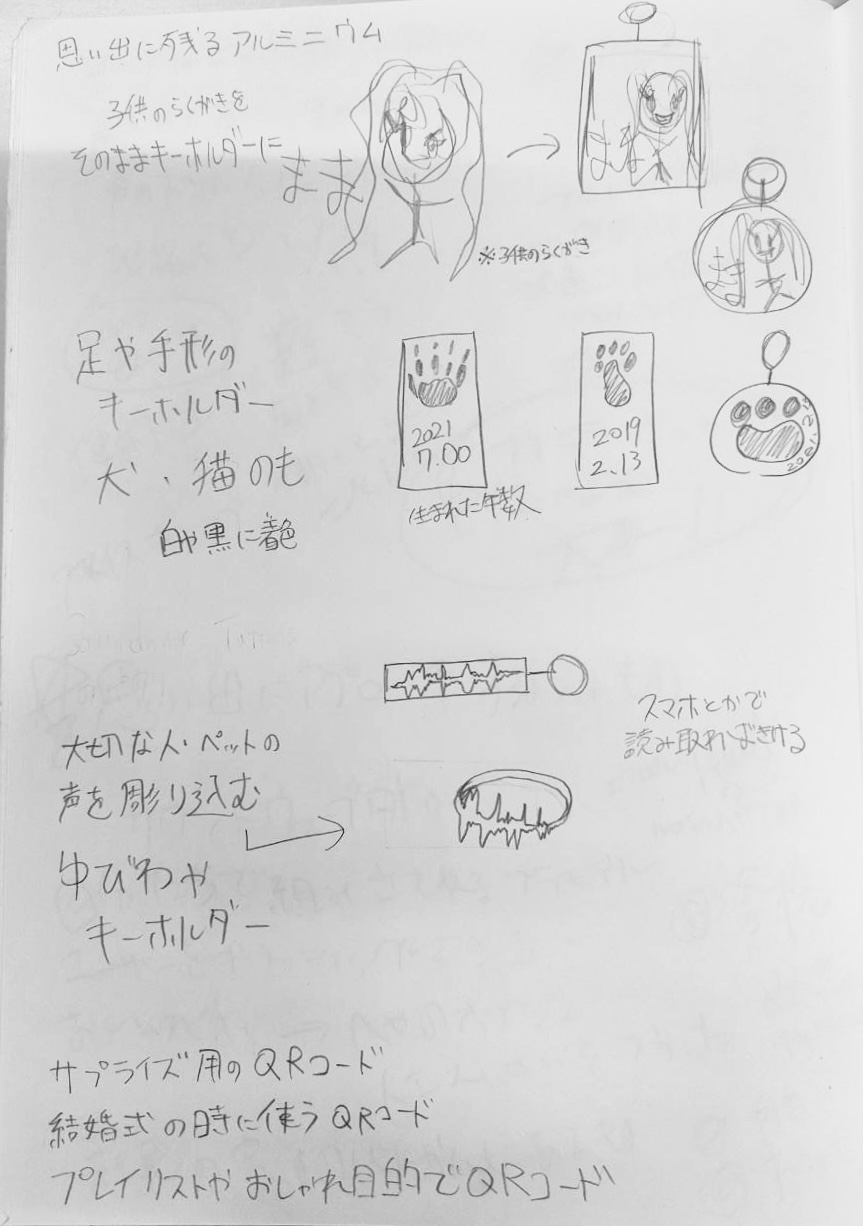 思い出に残るアルミニウム
子供のらくがきを
そのままキーホルダーに
まま
まま
まま
※子供のらくがき
足や手形の
キーホルダー
犬・猫のも
白や黒に着色
2021
7.00
2019
2.13
生まれた年数
大切な人・ペットの
声を彫り込む
ゆびわや
キーホルダー
スマホとかで
読み取ればきける
サプライズ用のQRコード
結婚式の時に使うQRコード
プレイリストやおしゃれ目的でQRコード